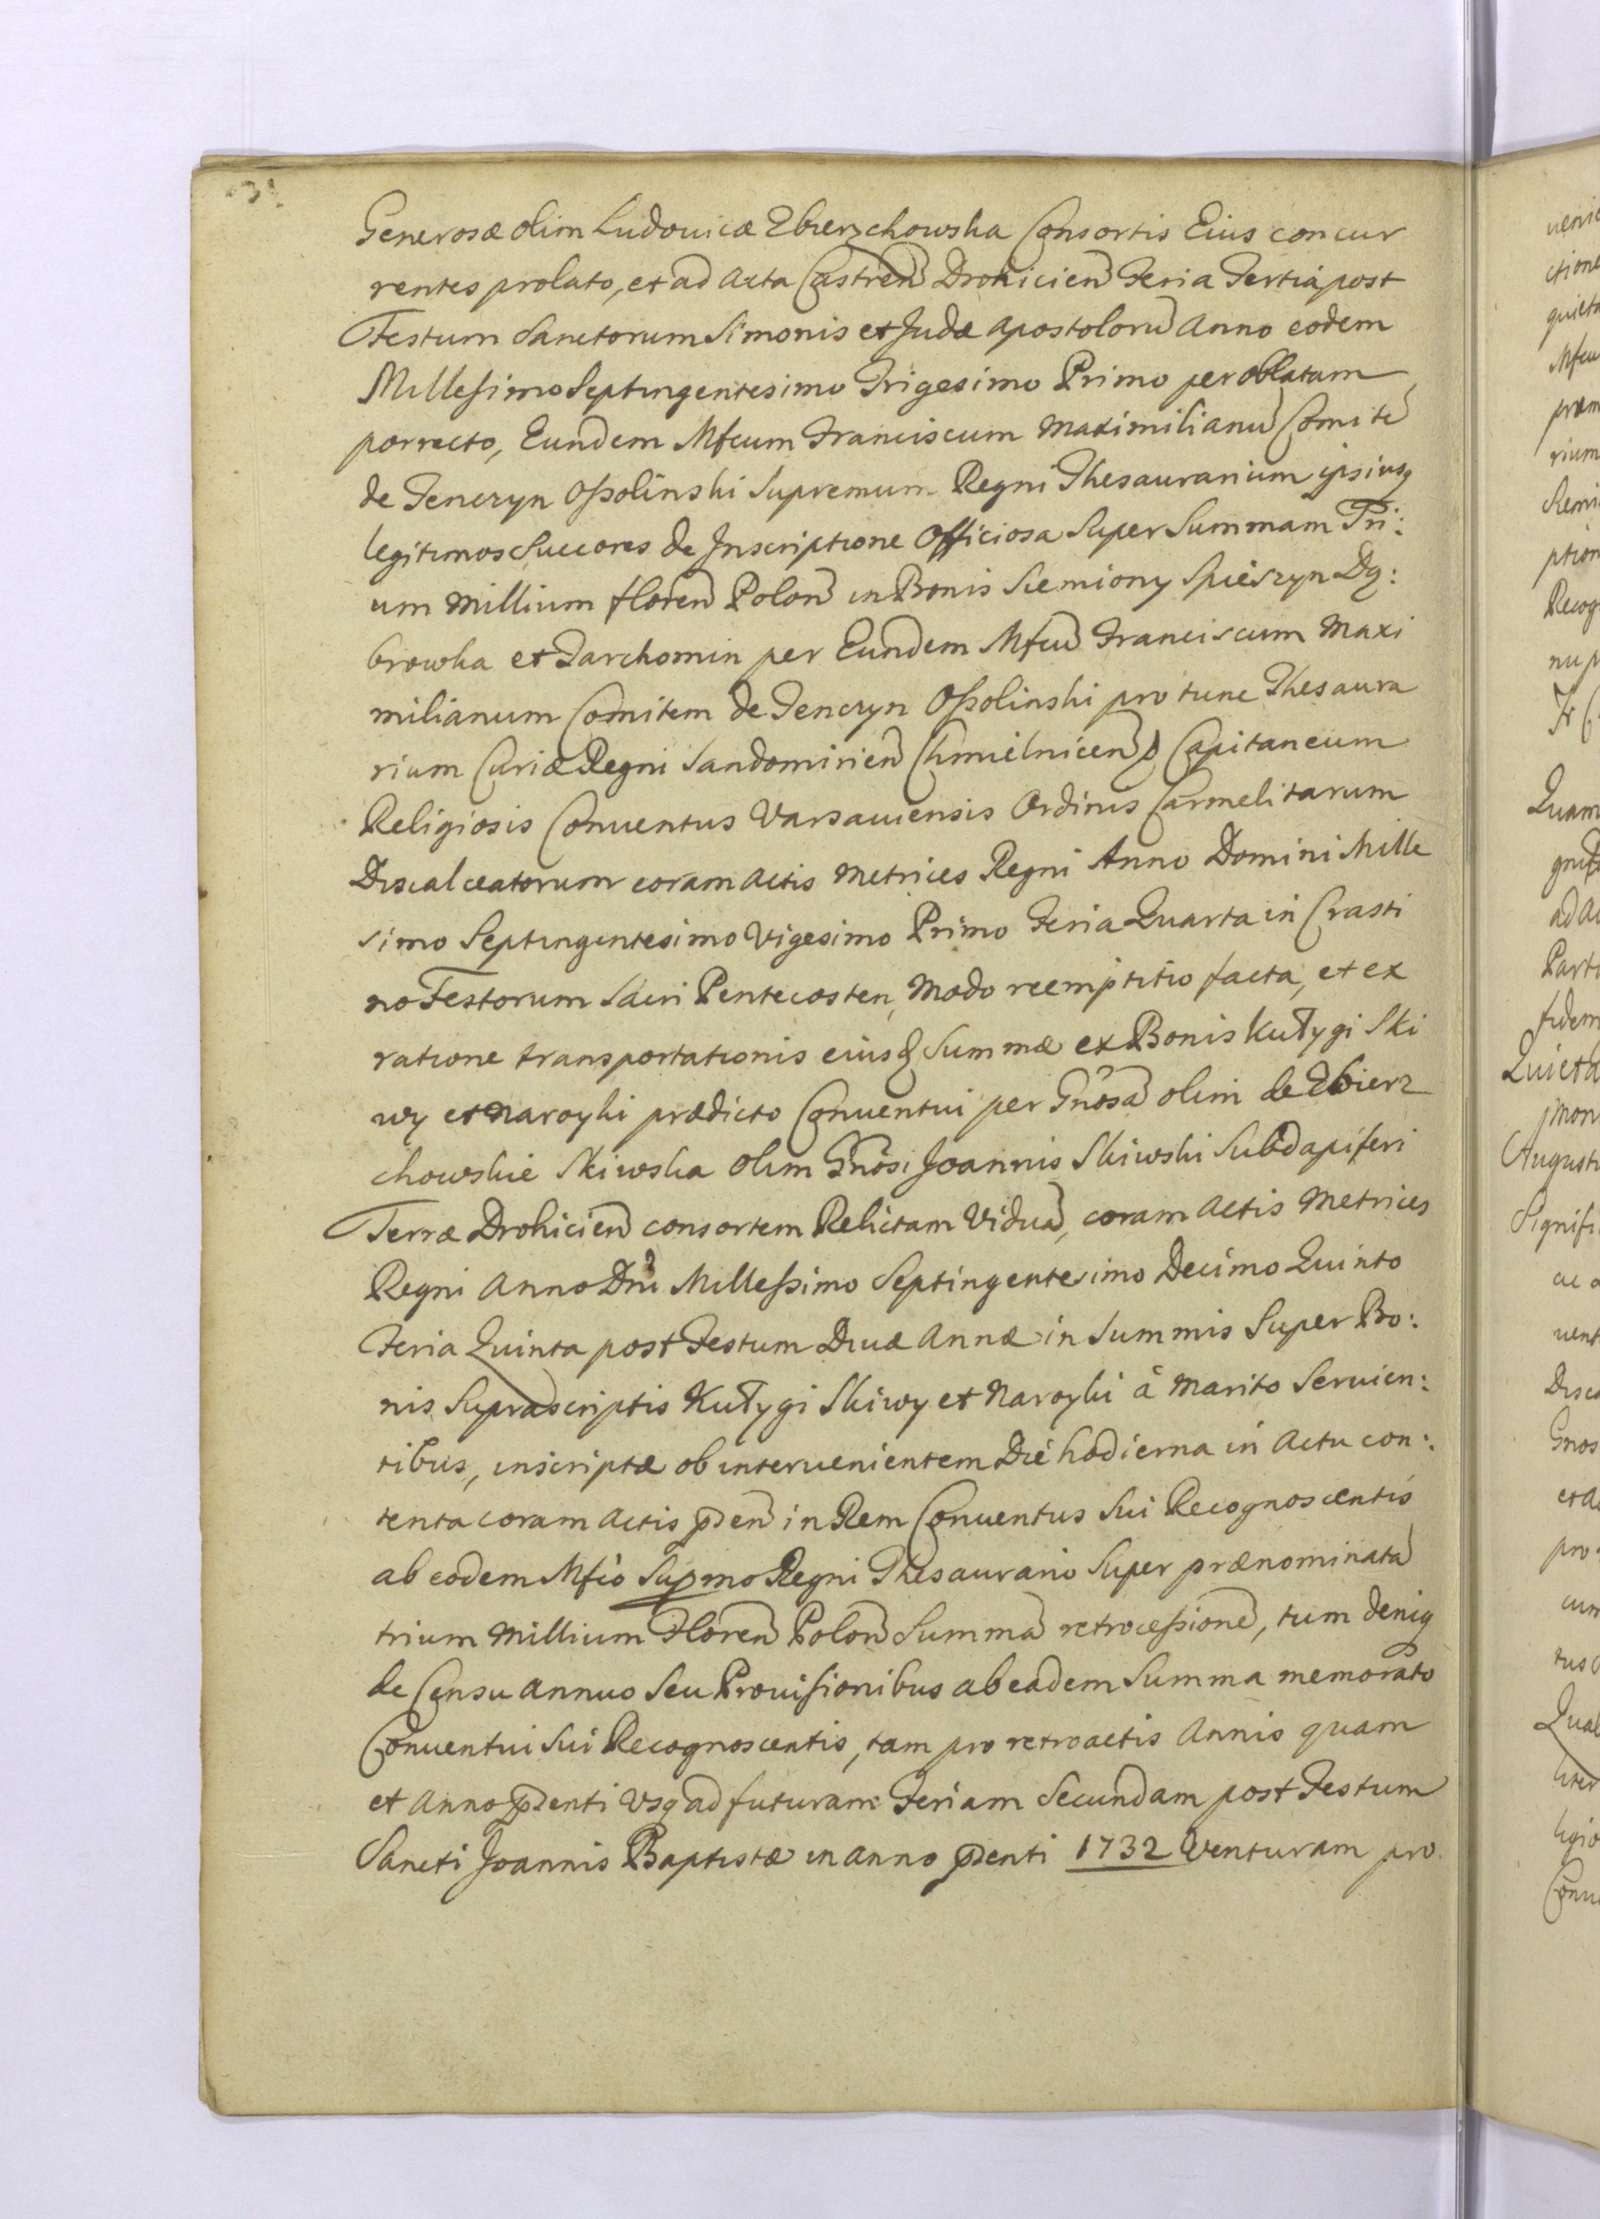 Generosæ olim Ludovicæ Zbierzchowska Consortis Eius concur
rentes prolato, et ad Acta Castren Drohicien Feria Tertia post
Festum Sanctorum Simonis et Judæ Apostoloru Anno eodem
Millesimo Septingentesimo Trigesimo Primo per oblatam
porrecto, Eundem Mfcum Franciscum Maximilianu Comite
de Tenczyn Ossolinski Supremum Regni Thesaurarium ipsiusq
legitimos Succores de Inscriptione Officiosa Super Summam Tri:
um Millium floren Polon in Bonis Siemiony Spieszyn Dą:
browka et Tarchomin per Eundem Mfcu Franciscum Maxi
milianum Comitem de Tenczyn Ossolinski pro tunc Thesaura
rium Curiæ Regni Sandomirien Chmielnicen Capitaneum
Religiosis Conventus Varsaviensis Ordinis Carmelitarum
Discalceatorum coram Actis Metrices Regni Anno Domini Mille
simo Septingentesimo Vigesimo Primo Feria Quarta in Crasti
no Festorum Sacri Pentecosten, Modo reemptitio facta, et ex
ratione transportationis eiusd Summæ ex Bonis Kułygi Ski
wy et Naroyki prædicto Conventui per Gnosa olim de Zbierz
chowskie Skiwska olim Gnosi Joannis Skiwski Subdapiferi
Terræ Drohicien consortem Relictam Vidua, coram Actis Metrices
Regni Anno Dni Millessimo Septingentesimo Decimo Quinto
Feria Quinta post Festum Divæ Annæ in Summis Super Bo:
nis Suprascriptis Kułygi Skiwy et Naroyki à Marito Servien:
tibus, inscriptæ ob intervenientem Die hodierna in Actu con:
tenta coram Actis pden in Rem Conventus Sui Recognoscentis
ab eodem Mfco Supmo Regni Thesaurario Super prænominata
trium Millium Floren Polon Summa retrocessione, tum deniq
de Censu annuo Seu Provisionibus ab eadem Summa memorato
Conventui Sui Recognoscentis, tam pro retroactis Annis quam
et Anno pdenti Usq ad futuram Feriam Secundam post Festum
Sancti Joannis Baptistæ in anno pdenti 1732 Venturam pro